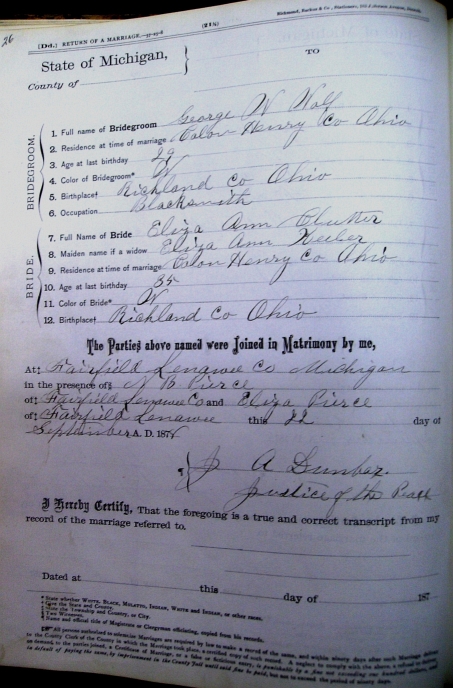 26
[Dd.] RETURN OF A MARRIAGE.
(218)
State of Michigan, }
TO
County of
BRIDEGROOM.
1. Full name of Bridegroom George W Wolf
2. Residence at time of marriage Colon Henry Co Ohio
3. Age at last birthday 29
4. Color of Bridegroom* W
5. Birthplace† Richland Co Ohio
6. Occupation Blacksmith
BRIDE.
7. Full Name of Bride Eliza Ann
8. Maiden name if a widow Eliza Ann
9. Residence at time of marriage Colon Henry Co Ohio
10. Age at last birthday 35
11. Color of Bride* W
12. Birthplace† Richland Co Ohio
The Parties above named were Joined in Matrimony by me,
At‡ Fairfield Lenawee Co Michigan
in the presence of§ N B Pierce
of‡ Fairfield Lenawee Co and Eliza Pierce
of‡ Fairfield Lenawee this 22 day of
September A. D. 187
¶ A Dunbar.
Justice of the Peace
I Hereby Certify, That the foregoing is a true and correct transcript from my
record of the marriage referred to.
Dated at
this day of 187
* State whether WHITE, BLACK, MULATTO, INDIAN, WHITE and INDIAN, or other races.
† Give the State and County.
‡ Give the Township and County, or City.
§ Two Witnesses.
¶ Name and official title of Magistrate or Clergyman officiating, copied from his records.